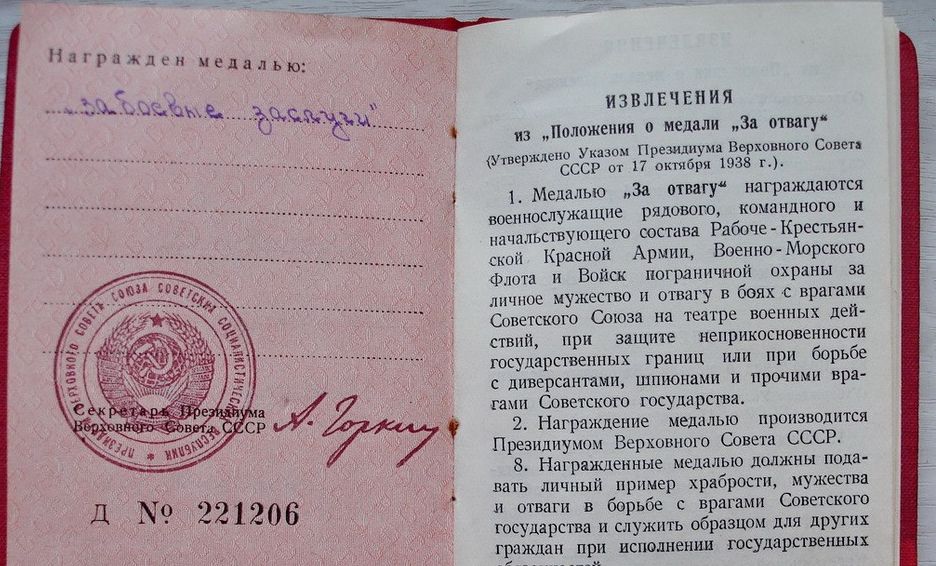 Награжден медалью:
„за боевые заслуги"
Секретарь Президиума
Верховного Совета СССР
А. Горкин
Д № 221206
ИЗВЛЕЧЕНИЯ
из „Положения о медали „За отвагу“
(Утверждено Указом Президиума Верховного Совета
СССР от 17 октября 1938 г.).
1. Медалью „За отвагу“ награждаются
военнослужащие рядового, командного и
начальствующего состава Рабоче-Крестьян-
ской Красной Армии, Военно-Морского
Флота и Войск пограничной охраны за
личное мужество и отвагу в боях с врагами
Советского Союза на театре военных дей-
ствий, при защите неприкосновенности
государственных границ или при борьбе
с диверсантами, шпионами и прочими вра-
гами Советского государства.
2. Награждение медалью производится
Президиумом Верховного Совета СССР.
8. Награжденные медалью должны пода-
вать личный пример храбрости, мужества
и отваги в борьбе с врагами Советского
государства и служить образцом для других
граждан при исполнении государственных